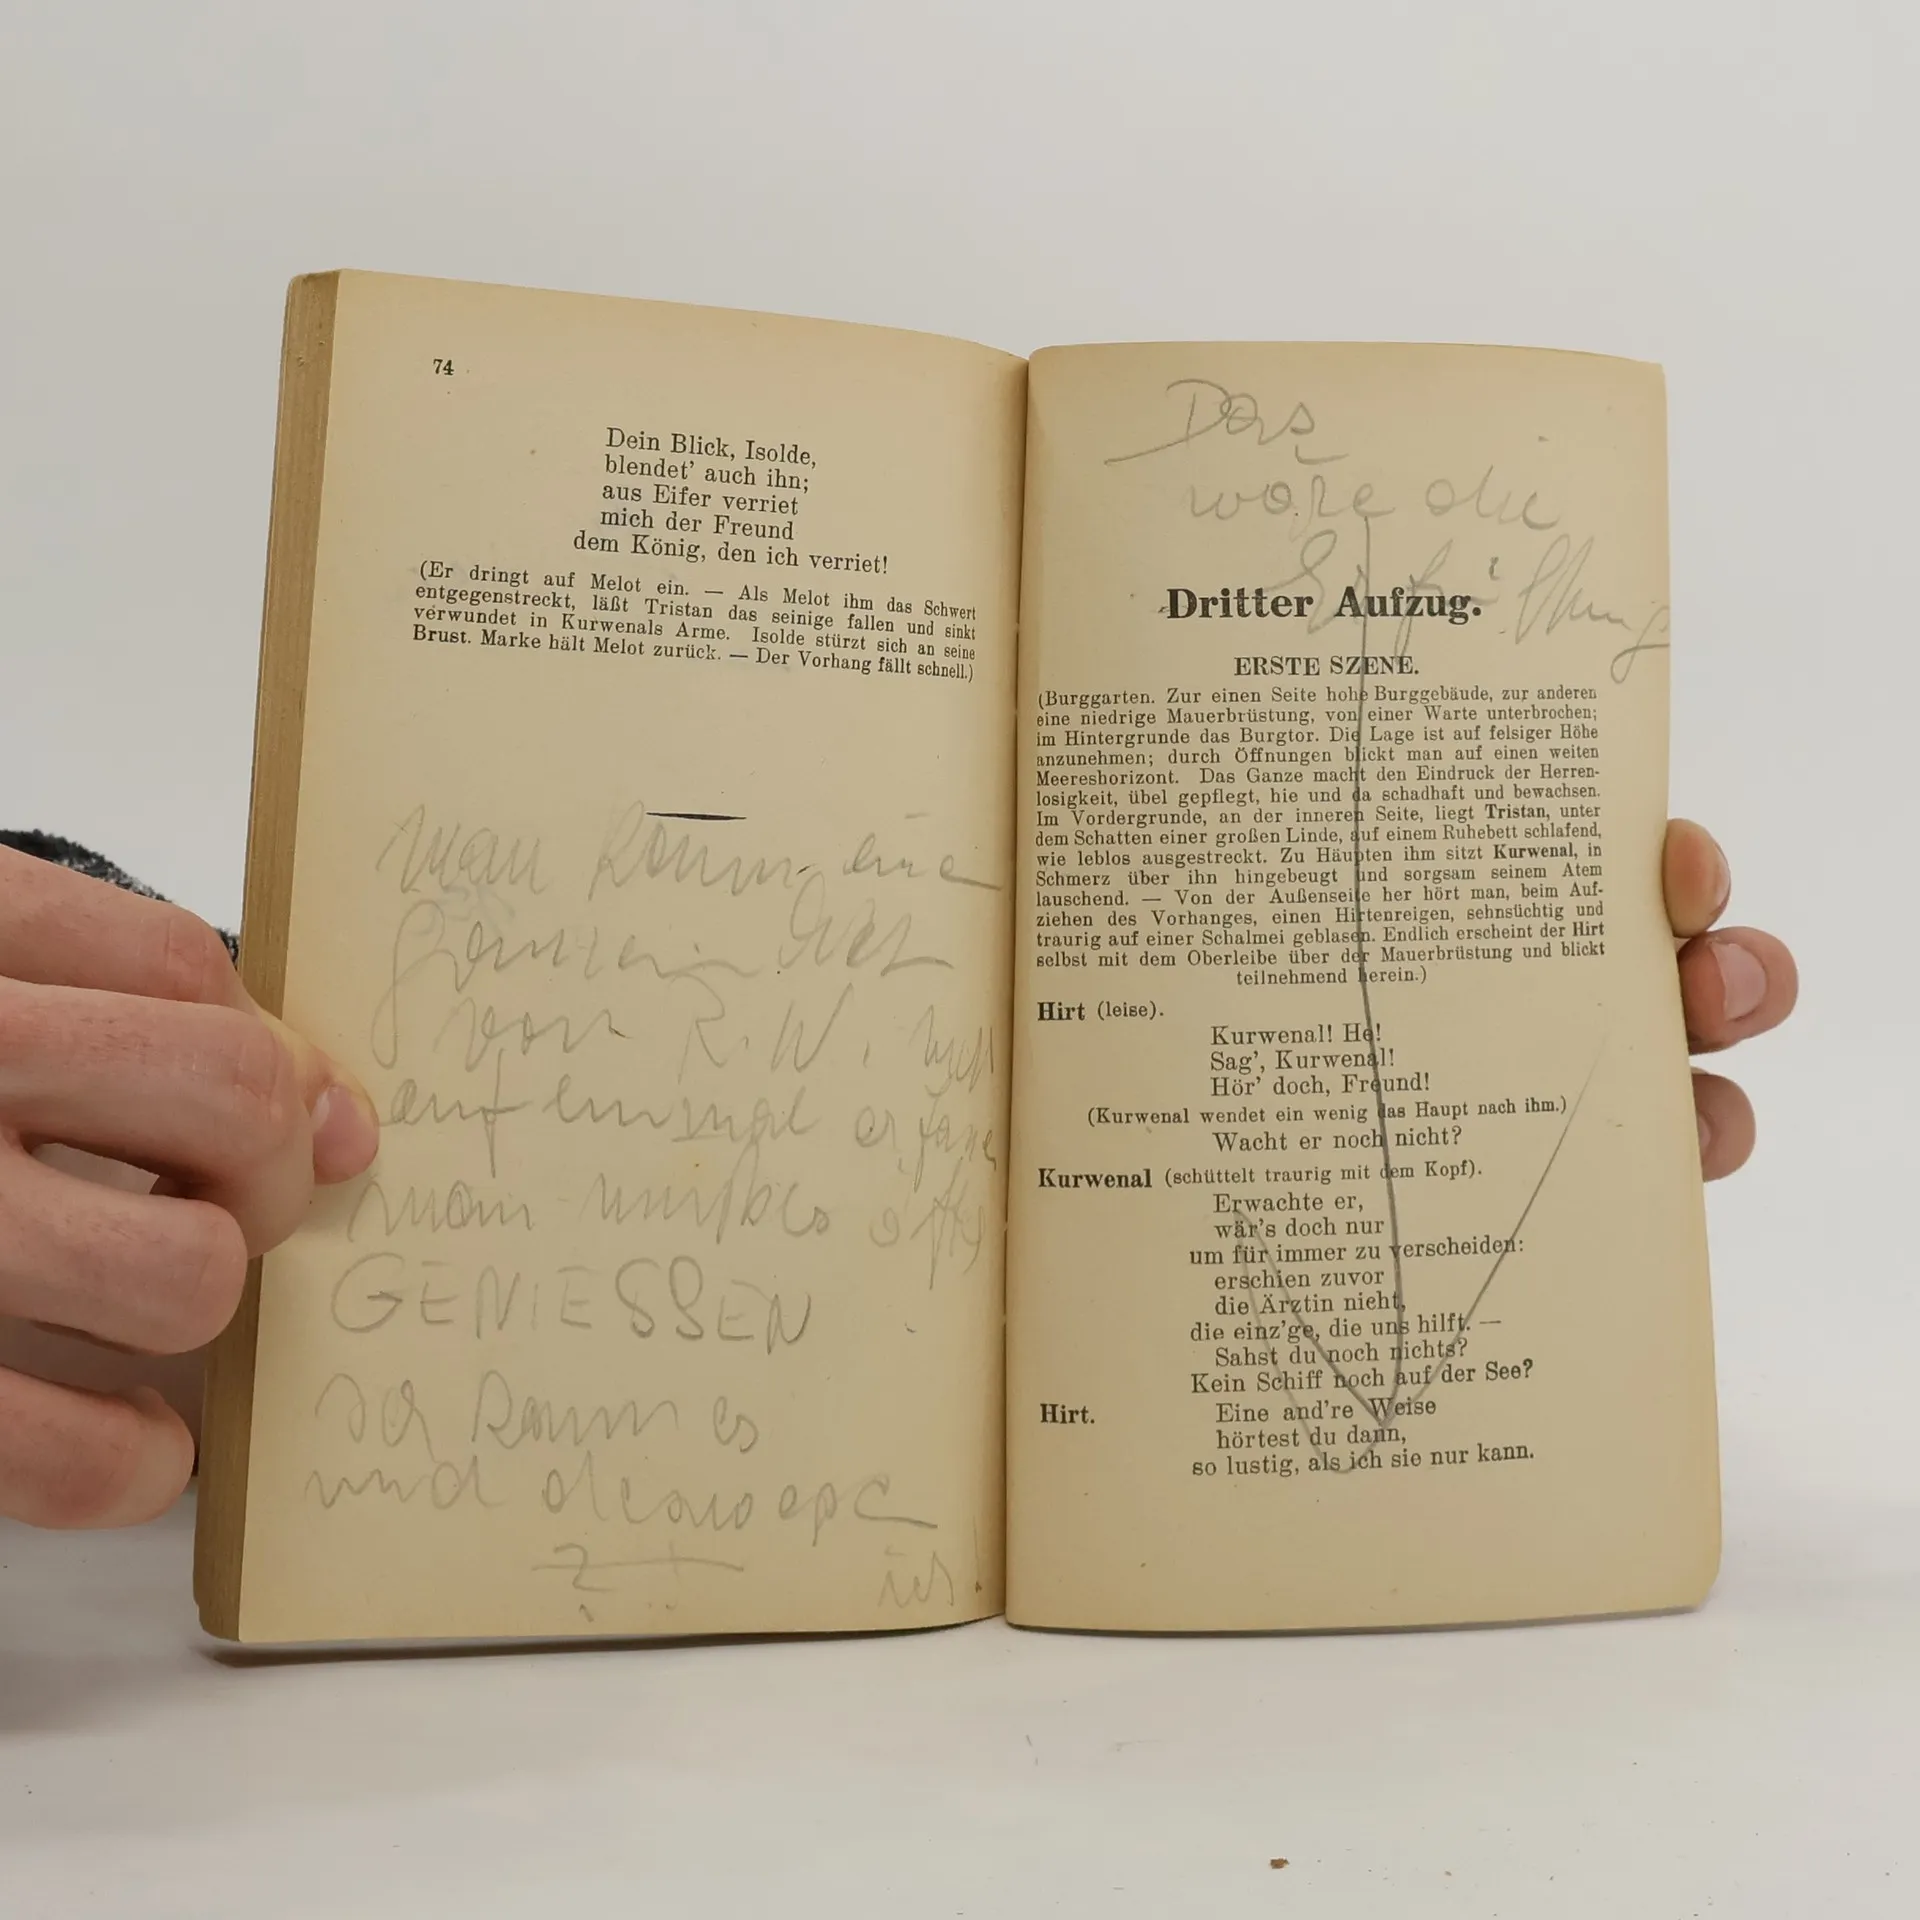 74
Dein Blick, Isolde,
blendet' auch ihn;
aus Eifer verriet
mich der Freund
dem König, den ich verriet!
(Er dringt auf Melot ein. — Als Melot ihm das Schwert
entgegenstreckt, läßt Tristan das seinige fallen und sinkt
verwundet in Kurwenals Arme. Isolde stürzt sich an seine
Brust. Marke hält Melot zurück. — Der Vorhang fällt schnell.)
Man kann eine
von R. W.
auf einmal
man muß es
GENIESSEN
Ich kann es
und
?
ich!
Das
wäre die
Erfüllung
Dritter Aufzug.
ERSTE SZENE.
(Burggarten. Zur einen Seite hohe Burggebäude, zur anderen
eine niedrige Mauerbrüstung, von einer Warte unterbrochen;
im Hintergrunde das Burgtor. Die Lage ist auf felsiger Höhe
anzunehmen; durch Öffnungen blickt man auf einen weiten
Meereshorizont. Das Ganze macht den Eindruck der Herren-
losigkeit, übel gepflegt, hie und da schadhaft und bewachsen.
Im Vordergrunde, an der inneren Seite, liegt Tristan, unter
dem Schatten einer großen Linde, auf einem Ruhebett schlafend,
wie leblos ausgestreckt. Zu Häupten ihm sitzt Kurwenal, in
Schmerz über ihn hingebeugt und sorgsam seinem Atem
lauschend. — Von der Außenseite her hört man, beim Auf-
ziehen des Vorhanges, einen Hirtenreigen, sehnsüchtig und
traurig auf einer Schalmei geblasen. Endlich erscheint der Hirt
selbst mit dem Oberleibe über der Mauerbrüstung und blickt
teilnehmend herein.)
Hirt (leise).
Kurwenal! He!
Sag', Kurwenal!
Hör' doch, Freund!
(Kurwenal wendet ein wenig das Haupt nach ihm.)
Wacht er noch nicht?
Kurwenal (schüttelt traurig mit dem Kopf).
Erwachte er,
wär's doch nur
um für immer zu verscheiden:
erschien zuvor
die Ärztin nicht,
die einz'ge, die uns hilft. —
Sahst du noch nichts?
Kein Schiff noch auf der See?
Hirt. Eine and're Weise
hörtest du dann,
so lustig, als ich sie nur kann.